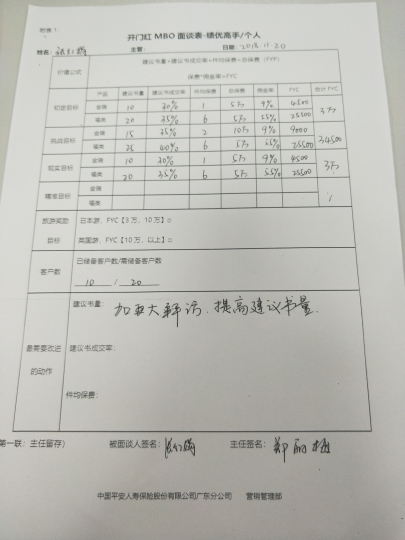 附表1
开门红 MBO 面谈表-绩优高手/个人
姓名: 主管: 日期: 2018.11.20
价值公式 建议书量*建议书成交率*件均保费=总保费(FYP)
保费*佣金率=FYC
产品 建议书量 建议书成交率 件均保费 总保费 佣金率 FYC 合计 FYC
初定目标 金瑞 10 30% 1 5万 9% 4500 3万
福类 20 35% 6 5万 55% 25500
挑战目标 金瑞 15 35% 2 10万 9% 9000 34500
福类 25 40% 6 5万 55% 25500
金瑞 10 30% 1 5万 9% 4500 3万
福类 20 35% 6 5万 55% 25500
精准目标 金瑞
福类
旅游奖励 日本游、FYC【3 万、10万】□
目标 英国游、FYC【10 万、以上】□
客户数 已储备客户数/需储备客户数
10 / 20
建议书量: 加大 访、提高建议书量.
最需要改进 建议书成交率:
的动作
件均保费:
第一联:主任留存) 被面谈人签名: 主任签名: 郑丽
中国平安人寿保险股份有限公司广东分公司 营销管理部